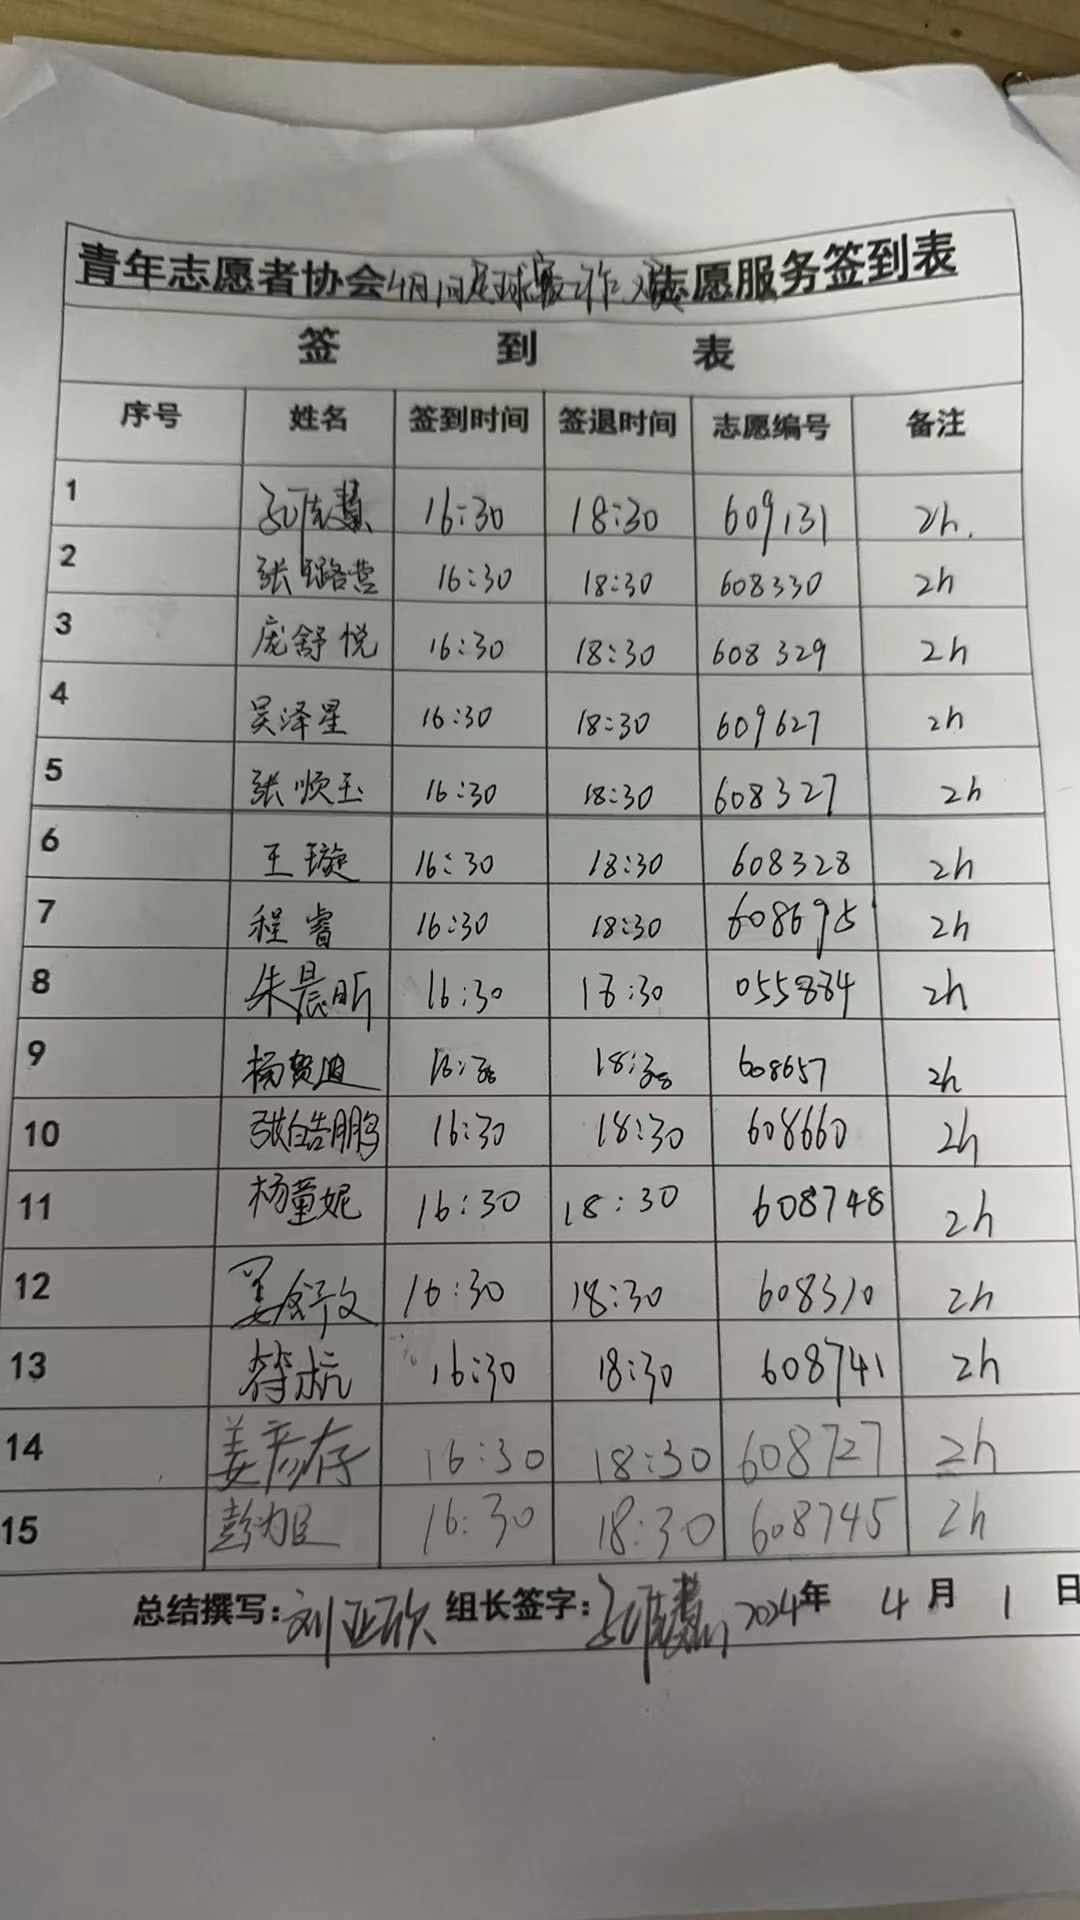 青年志愿者协会4月1日足球赛工作 志愿服务签到表
签 到 表
序号 姓名 签到时间 签退时间 志愿编号 备注
1 16:30 18:30 609131 2h.
2 张璐营 16:30 18:30 608330 2h
3 庞舒悦 16:30 18:30 608329 2h
4 吴泽星 16:30 18:30 609627 2h
5 张顺玉 16:30 18:30 608327 2h
6 王璇 16:30 18:30 608328 2h
7 程睿 16:30 18:30 608695 2h
8 朱晨昕 16:30 18:30 055884 2h
9 杨贺迪 16:30 18:30 608657 2h
10 张皓鹏 16:30 18:30 608660 2h
11 杨童妮 16:30 18:30 608748 2h
12 姜舒文 16:30 18:30 608310 2h
13 符杭 16:30 18:30 608741 2h
14 姜彦存 16:30 18:30 608727 2h
15 16:30 18:30 608745 2h
总结撰写:刘亚欣 组长签字: 2024年 4月 1日